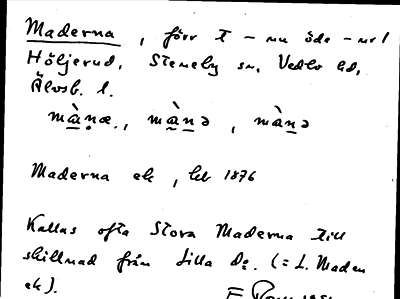 Maderna, förr t – nu öde – nr 1
Höljerud, Steneby sn, Vedbo hd,
Älvsb. l.
mànæ., mànə, mànə
Maderna ek, lbl 1876
Kallas ofta Stora Maderna till
skillnad från Lilla D:o. (= L. Maden
ek).